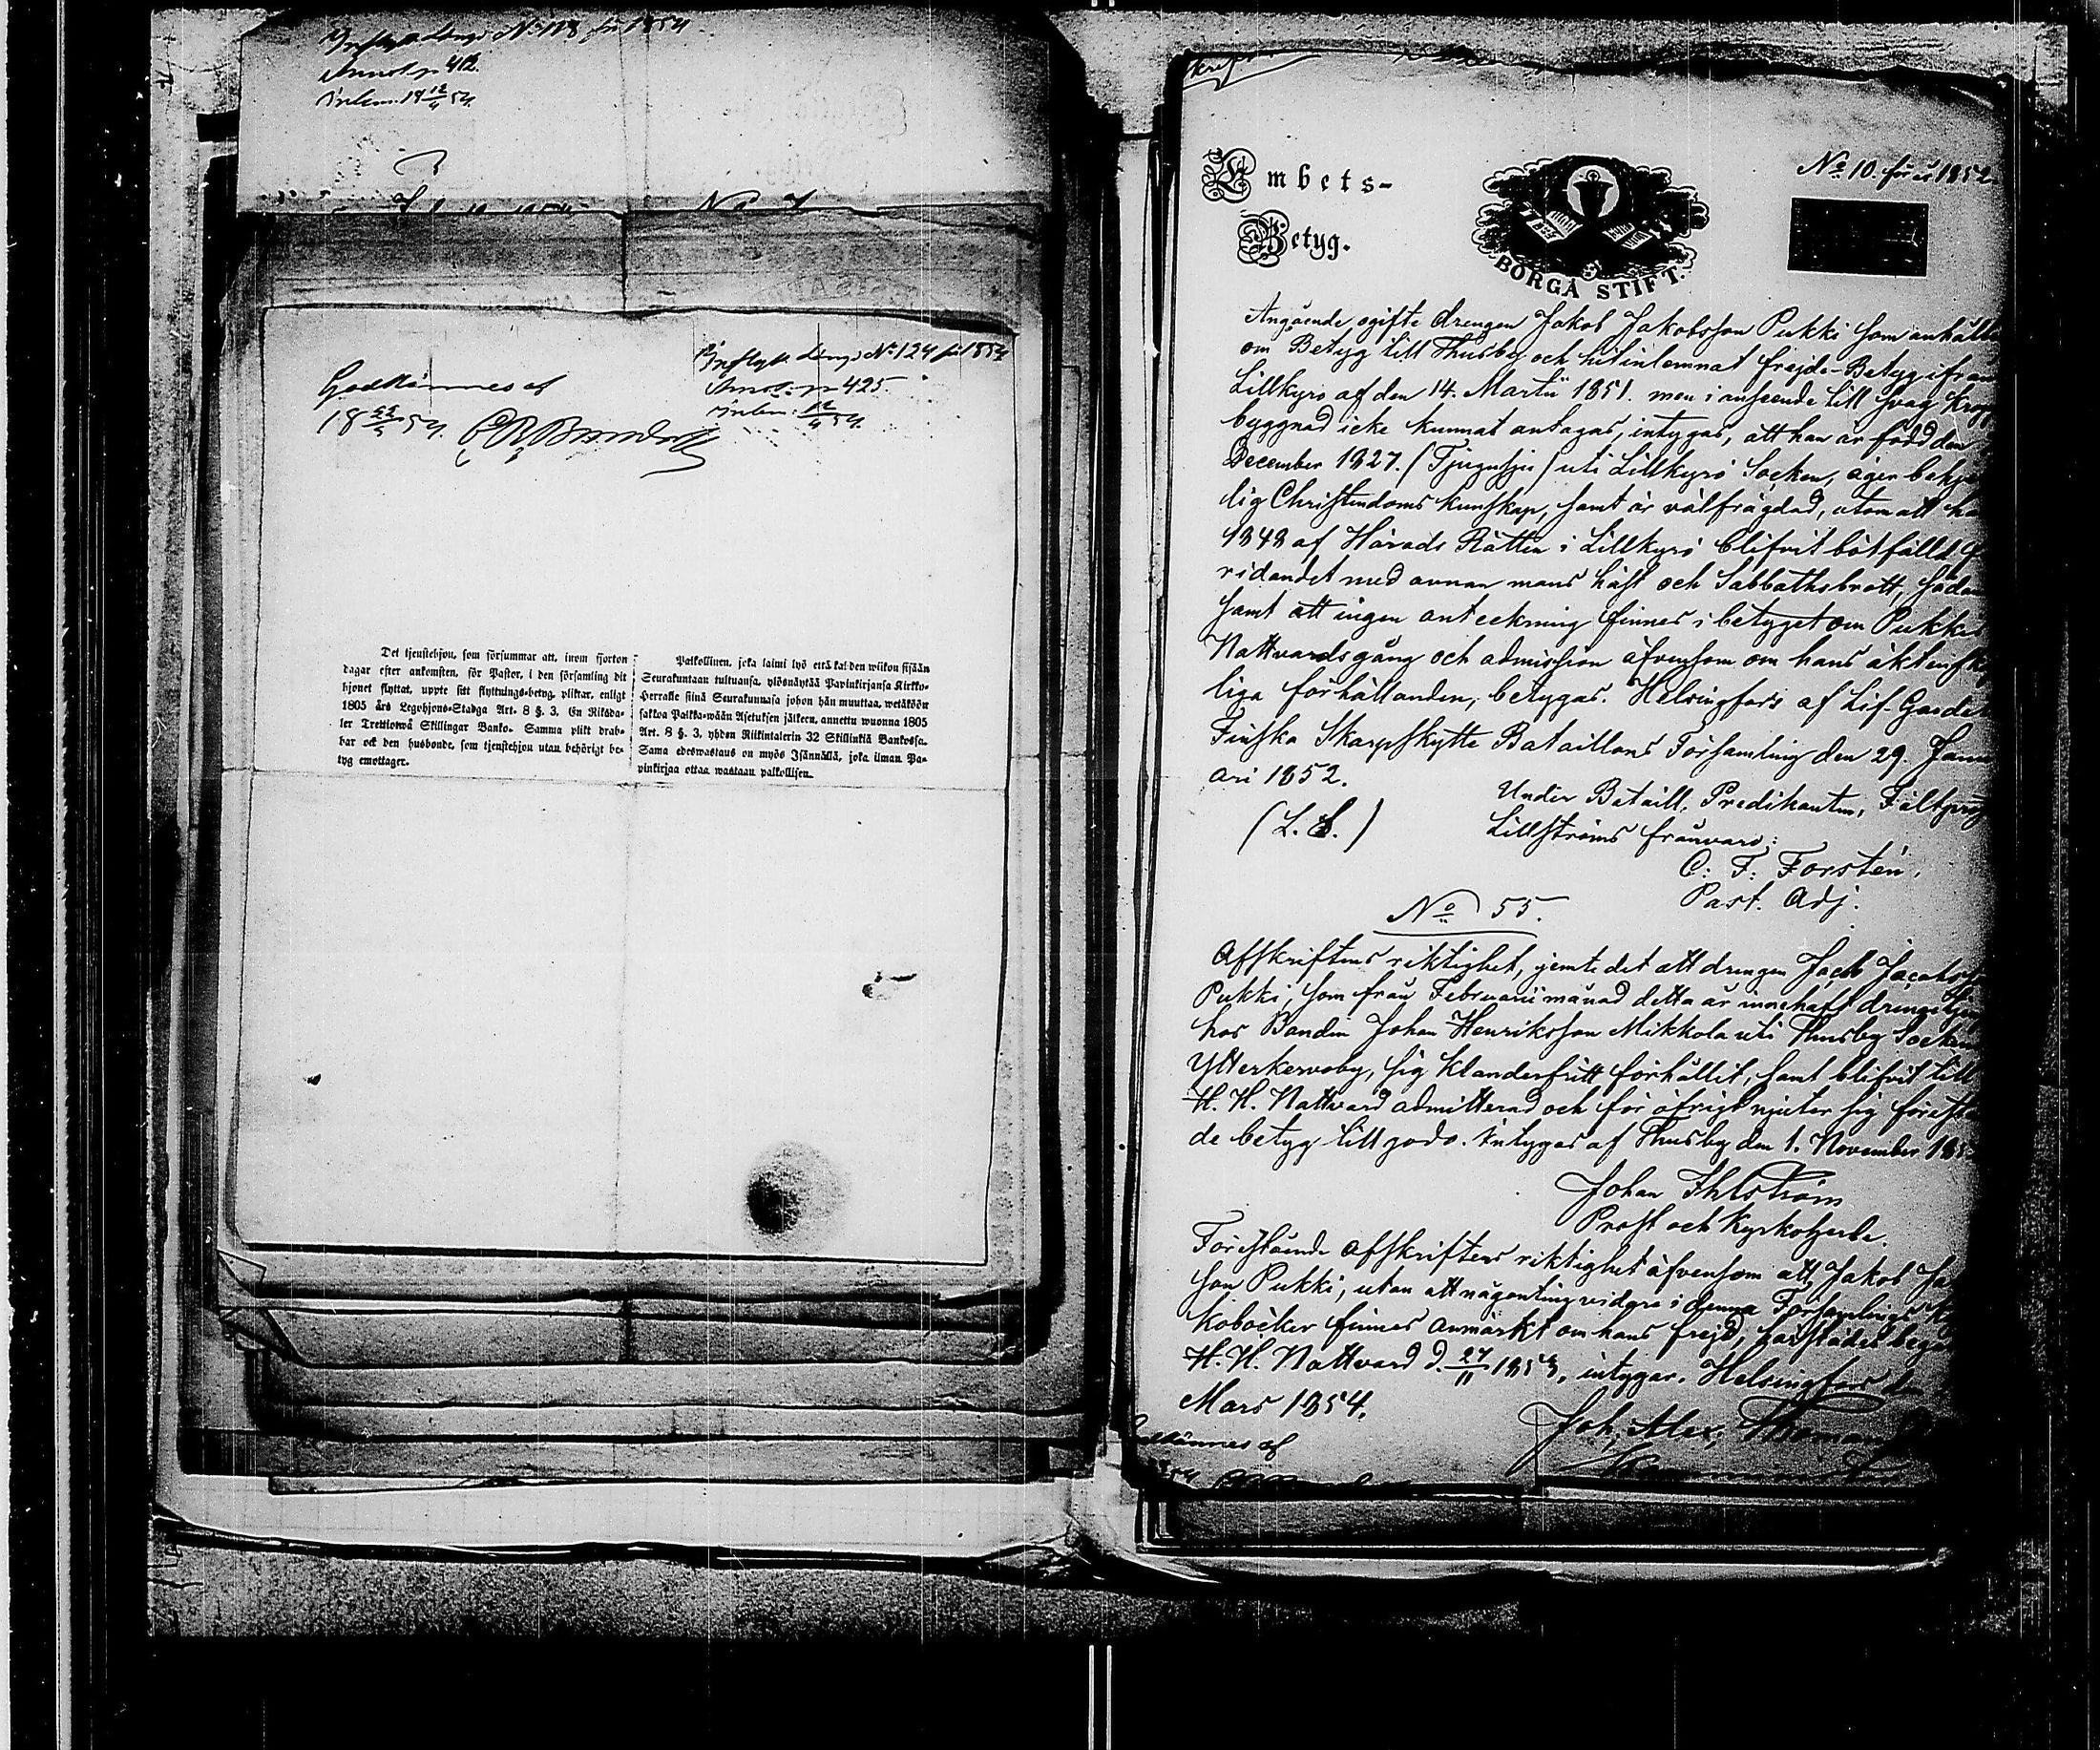 Inflytt. Längd No 118 för 1854
Annot. p 412.
Inlem. 19 12/4 54.
Godkännes af
18 22/5 54.
Inflytt. Längd No 124 för 1854
Annot. p 425.
Inlem. 12/4 54.
Det tjenstehjon, som försummar att, inom fjorton
dagar efter ankomsten, för Pastor, i den församling dit
hjonet flyttat, uppte sitt flyttnings-betyg, pliktar, enligt
1805 års Legohjons-Stadga Art. 8 §. 3. En Riksda-
ler Trettiotwå Skillingar Banko. Samma plikt drab-
bar ock den husbonde, som tjenstehjon utan behörigt be-
tyg emottager.
Palkollinen, joka laimi lyö että kahden wiikon sisään
Seurakuntaan tultuansa, ylösnäytää Papinkirjansa Kirkko-
herralle siinä Seurakunnasa johon hän muuttaa, wetäköön
sakkoa Palkka-wään Asetuksen jälkeen, annettu wuonna 1805
Art. 8 §. 3. yhden Riikintalerin 32 Skillinkiä Bankossa.
Sama edeswastaus on myös Isännällä, joka ilman Pa-
pinkirjaa ottaa wastaan palkollisen.
No 10. för år 1852
Embets-
Betyg.
BORGÅ STIFT.
Angående ogifte drengen Jakob Jakobsson Pukki som anhålle
om Betyg till Thusby och hit inlemnat frejde-Betyg ifrån
Lillkyro af den 14. Martii 1851. men i anseende till svag kropps
byggnad icke kunnat antagas, intygas, att han är född den
December 1827. (Tjugusju) uti Lillkyro Socken, äger behje
lig Christendoms kunskap, samt är välfrägdad, utom att ha
1848 af Härads Rätten i Lillkyrö blifvit bötfälld f
ridandet med annan mans häst och Sabbathsbrott, sådan
samt att ingen anteckning finnes i betyget om Pukkis
Nattvardsgång och admission äfvensom om hans äktenska
liga förhållanden, betygas. Helsingfors af Lif-Gardes
Finska Skarpskytte Bataillons Församling den 29. Janu
ari 1852.
Under Bataill. Predikanten, Fältpros
(L. S.)
Lillströms frånvaro:
C: F: Forstén.
Past. Adj.
No 55.
Afskriftens riktighet, jemte det att drengen Jacob Jacobss
Pukki, som från Februarii månad detta år innehaft drengetjen
hos Bonden Johan Henriksson Mikkola uti Thusby Socken
Ytterkervoby, sig klanderfritt förhållit, samt blifvit till
H. H. Nattvard admitterad och för öfrigt njuter sig förestå
de betyg till godo. Intygas af Thusby den 1. November 185
Johan Ihlström
Prost och Kyrkoherde.
Förestående afskriftens riktighet äfvensom att Jakob Ja
son Pukki, utan att någonting vidare i denna Församlings Ky
koböcker finnes anmärkt om hans frejd, härstädes begå
H. H. Nattvard d. 27/11 1853, intygar. Helsingfors den
Mars 1854.
Joh. Alex.
Godkännes af